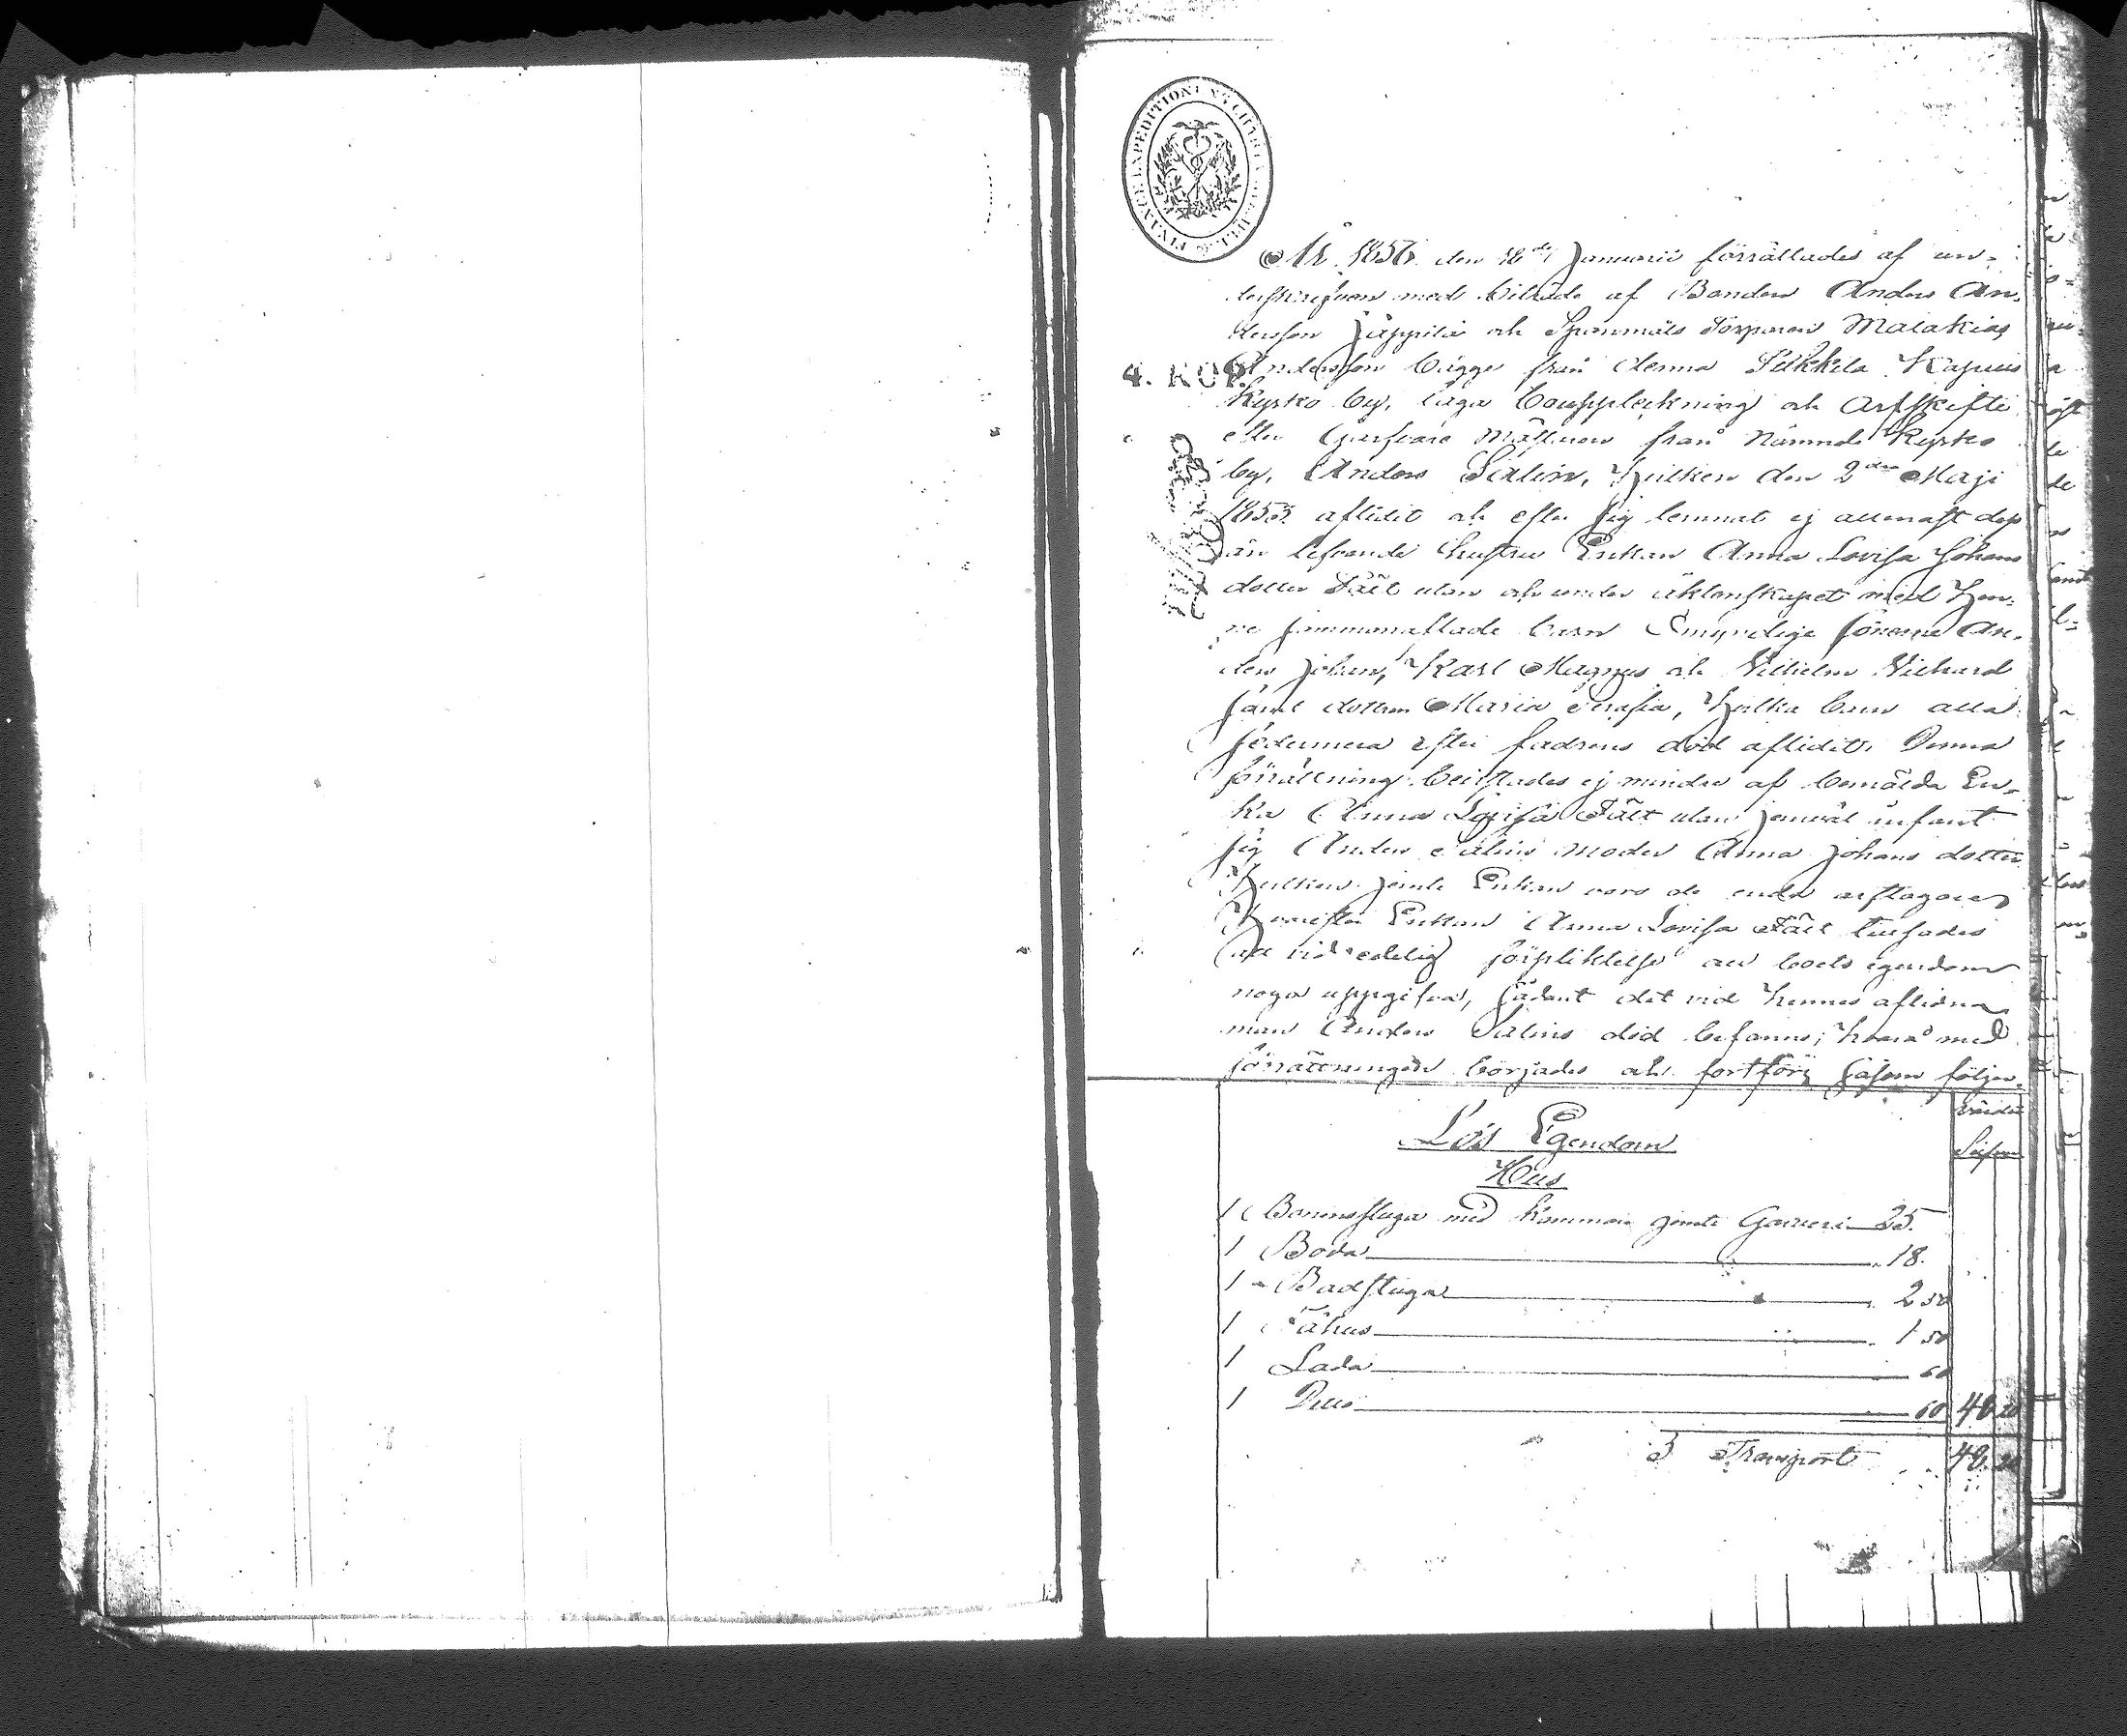 FINANCE EXPEDITION
År 1856 den 18de Januarii förrättades af un-
derskrifven med biträde af Bonden Anders An-
dersson Jäppilä och Spanmåls Torparen Malakias
4. KOP.
Andersson bägge från denna Kajunis
Kyrko by, laga bouppteckning och Arfskifte
efter Garfvare Mästaren från Nämnde Kyrko
by, Anders Salin, hvilken den 2dra Maji
1853 aflidit och efter sig lemnat ej allenast dess
än lefvande hustru Enkan Anna Lovisa Johans
dotter Fält utan och under äktenskapet med hen-
ne sammanaflade barn Omyndige sönerne An-
ders Johan, Karl Magnus och Vilhelm Richard
samt dottren Maria Serafia, hvilka barn alla
sedermera efter fadrens död aflidit. Denna
förrättning bevistades ej mindre af bemälda En-
ka Anna Lovisa Fält utan jemväl infant
sig Anders Salins moder Anna Johans dotter
hvilken jemte Enkan voro de enda arftagare
Hvarefter Enkan Anna Lovisa Fält tillsades
att vid edelig förpliktelse all boets egendom
noga uppgifva, sådant det vid hennes aflidna
man Anders Salins död befanns; hvarmed
förrättningen börjades och fortför såsom följer.
Värdet
Lös Egendom
Silfver
Hus
1 Boningsstuga med Kammare jemte Garfveri 25.
1 Boda 18.
1 Badstuga 2 50
1 Fähus 1 50
1 Lada 60
1 60 48 20
Transport 48 20